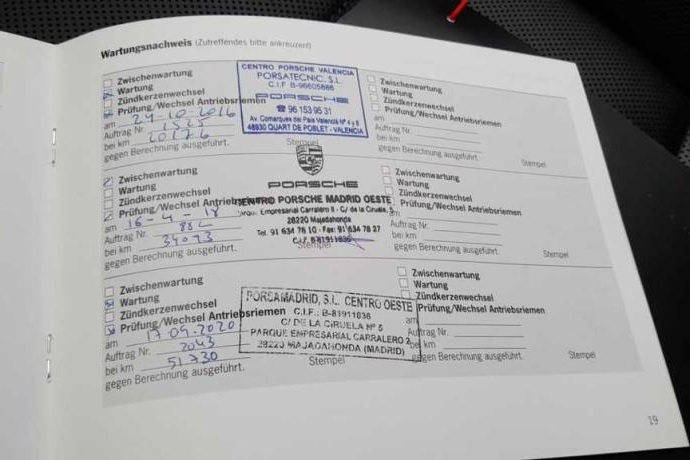 Wartungsnachweis (Zutreffendes bitte ankreuzen)
Zwischenwartung
Wartung
Zündkerzenwechsel
Prüfung/Wechsel Antriebsriemen
am 24-10-2016
Auftrag Nr. 1525
bei km 20176
gegen Berechnung ausgeführt.
Stempel
CENTRO PORSCHE VALENCIA
PORSATECNIC, S.L.
C.I.F B-96605886
PORSCHE
☎ 96 153 95 31
Av. Comarques del País Valencià Nº 4 y 6
46930 QUART DE POBLET - VALENCIA
Zwischenwartung
Wartung
Zündkerzenwechsel
Prüfung/Wechsel Antriebsriemen
am
Auftrag Nr.
bei km
gegen Berechnung ausgeführt.
Stempel
Zwischenwartung
Wartung
Zündkerzenwechsel
Prüfung/Wechsel
am 16-4-18
Auftrag Nr.
bei km 34093
gegen Berechnung ausgeführt.
Stempel
PORSCHE
CENTRO PORSCHE MADRID OESTE
Parque Empresarial Carralero II - C/ de la Ciruela, 5
28220 Majadahonda
Tel. 91 634 78 10 - Fax: 91 634 78 27
C.I.F. B-81911836
Zwischenwartung
Wartung
Zündkerzenwechsel
Prüfung/Wechsel Antriebsriemen
am
Auftrag Nr.
bei km
gegen Berechnung ausgeführt.
Stempel
Zwischenwartung
Wartung
Zündkerzenwechsel
Prüfung/Wechsel Antriebsriemen
am 17.09.2020
Auftrag Nr. 2043
bei km 51730
gegen Berechnung ausgeführt.
Stempel
PORSAMADRID, S.L. CENTRO OESTE
C.I.F.: B-81911836
C/ DE LA CIRUELA Nº 5
PARQUE EMPRESARIAL CARRALERO 2
28220 MAJADAHONDA (MADRID)
Zwischenwartung
Wartung
Zündkerzenwechsel
Prüfung/Wechsel Antriebsriemen
am
Auftrag Nr.
bei km
gegen Berechnung ausgeführt.
Stempel
19